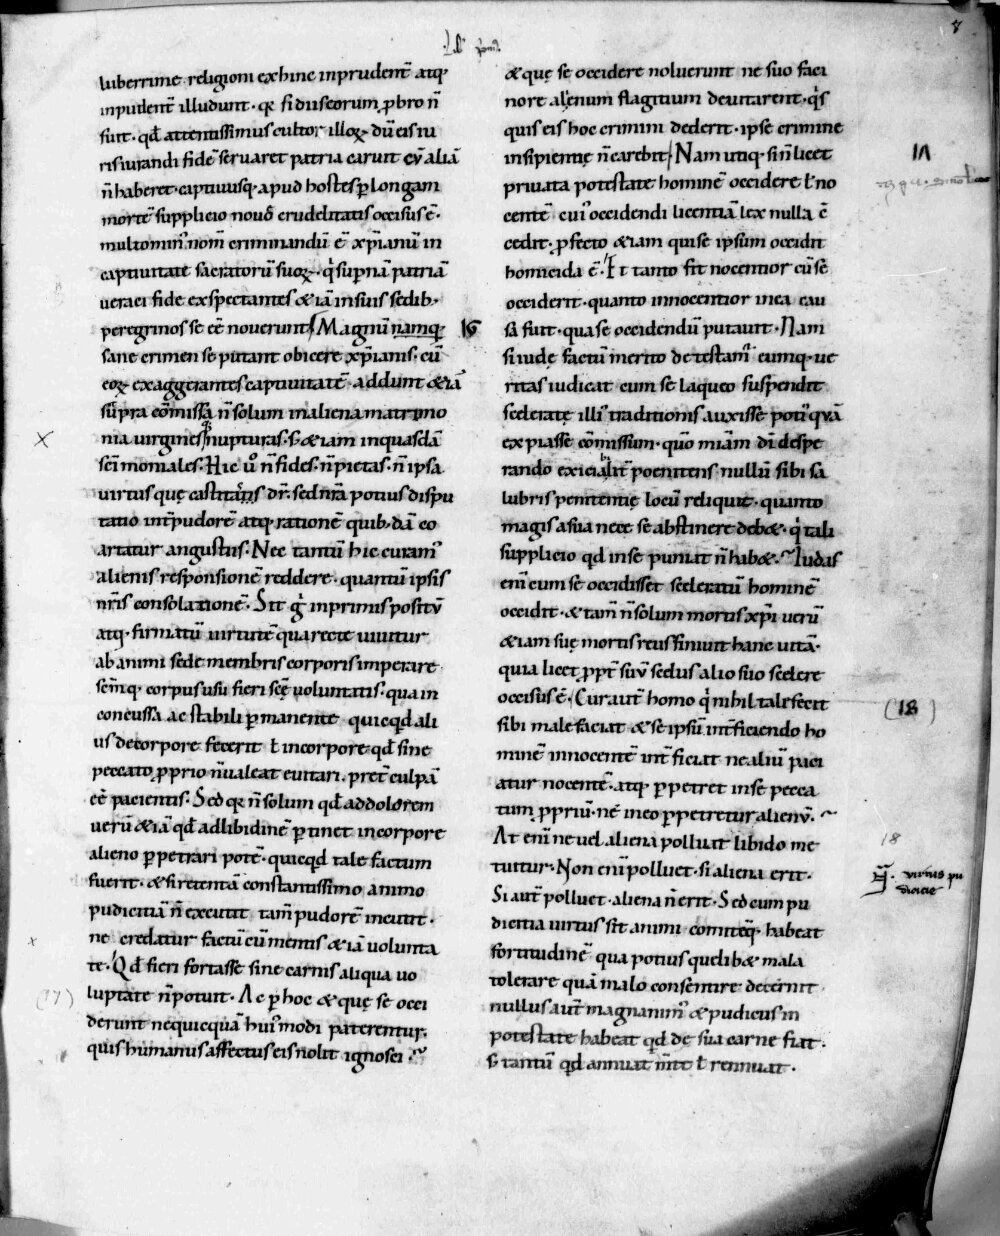 ·L͞· p͛imꝰ.
8
luberrime religioni ex hinc inprudent̄ atq;
inpudent̄ illudunt· qꝛ si dii seorum ꝓbro n̄
sunt· qd̄ attentissimus cultor illoꝝ dū eis iu
risiurandi fidē servaret patria caruit cū aliā
n̄ haberet· captivusq; apud hostes ꝑ longam
mortē supplicio novę crudelitatis occisus ē·
multo minꝰ nom̄ criminandū ē xp̄ianū in
captivitate sacratorū suoꝝ· qͥ sup̄nā patriā
veraci fide exspectantes & iā in suis sedib;
peregrinos se eē noverunt/ Magnū namq; 16
sane crimen se putant obicere xp̄ianis· cū
eoꝝ exaggerantes captivitatē· addunt & iā
sup̄ra cōmissa n̄ solum in aliena matrimo
nia virginesq; nupturas· s; & iam in quasdā
sc̄imoniales· Hic ů n̄ fides· n̄ pietas· n̄ ipsa
virtus quę castitatis dr̄· sed nr̄a potius dispu
tatio int̄ pudorē atq; rationē quib; dā co
artatur angustiis· Nec tantū hic curamꝰ
alienis responsionē reddere· quantū ipsis
nr̄is consolationē· Sit gͥ inprimis positū
atq; firmatū virtutē qua recte vivitur
ab animi sede membris corporis imperare
sēmq; corpus usu fieri scę voluntatis· qua in
concussa ac stabili ꝑmanente quicqd ali
us de corpore fecerit ł in corpore qd̄ sine
peccato ꝓprio n̄ valeat euitari· pret̄ culpā
eē pacientis· Sed qꝛ n̄ solum qd̄ ad dolorem
verū & iā qd̄ ad libidinē ꝑtinet in corpore
alieno ꝑpetrari potē· quicqd tale factum
fuerit· & si retentā constantissimo animo
pudicitiā n̄ excutit tam̄ pudorē incutit·
ne credatur factū cū mentis & iā volunta
te· Qd̄ fieri fortasse sine carnis aliqua vo
luptate n̄ potuit· Ac ꝑ hoc & quę se occi
derunt ne quicquā huiꝰmodi paterentur·
quis humanus affectus eis nolit ignosci·
X
x
(17)
& quę se occidere noluerunt ne suo faci
nore alienum flagitium devitarent· qͥs
quis eis hoc crimini dederit· ipse crimine
insipientię n̄ carebit/ Nam utiq; si n̄ licet 17
privata potestate hominē occidere ł no
centē cuiꝰ occidendi licentiā lex nulla c̄
cedit· ꝓfecto & iam qui se ipsum occidit
homicida ē· Et tanto fit nocentior cū sē
occiderit· quanto innocentior in ea cau
sa fuit· qua se occidendū putavit· Nam
si iudę factū merito detestamꝰ eumq; ve
ritas iudicat cum se laqueo suspendit
sceleratę illiꝰ traditionis auxisse potiꝰ quā
expiasse cōmissum· quō miam̄ dī despe
rando exiciabilit̄ poenitens nullū sibi sa
lubris penitentię locū reliquit· quanto
magis a sua nece se abstinere deb&· qͥ tali
supplicio qd̄ in se puniat n̄ hab&· Iudas
enī cum sē occidisset sceleratū hominē
occidit· & tam̄ n̄ solum mortis xp̄i verū
& iam suę mortis reus finivit hanc vitā·
quia licet ꝓpt̄ suū scelus alio suo scelere
occisus ē· Cur aut̄ homo qͥ nihil tale fecit (18)
sibi male faciat & se ipsū int̄ficiendo ho
minē innocentē int̄ficiat ne aliū paci
atur nocentē· atq; ꝑpetret in se pecca
tum ꝓpriū· ne in eo ꝑpetretur alienū·
At enī ne vel aliena polluat libido me 18
tuitur· Non enī polluet· si aliena erit·
Si aut̄ polluet· aliena n̄ erit· Sed cum pu
dicitia virtus sit animi comitēq; habeat
fortitudinē qua potius quęlib& mala
tolerare quā malo consentire decernit·
nullus aut̄ magnanimꝰ & pudicus in
potestate habeat qd̄ de sua carne fiat·
s; tantū qd̄ annuat m̄te ł rennuat·
virtus pu
dicicie